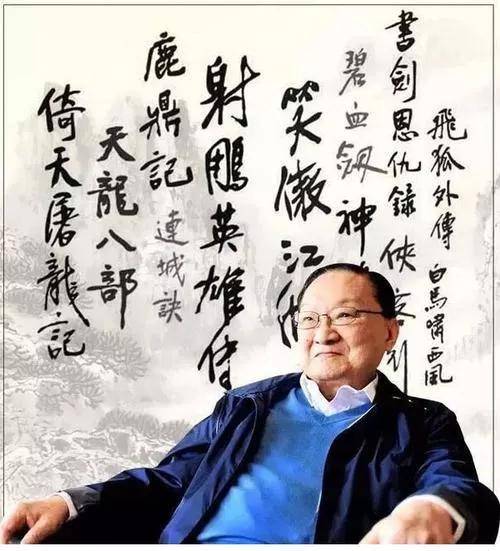 飛狐外傳
白馬嘯西風
書劍恩仇錄
俠
碧血劍
神
笑傲江
射鵰英雄傳
鹿鼎記
連城訣
天龍八部
倚天屠龍記